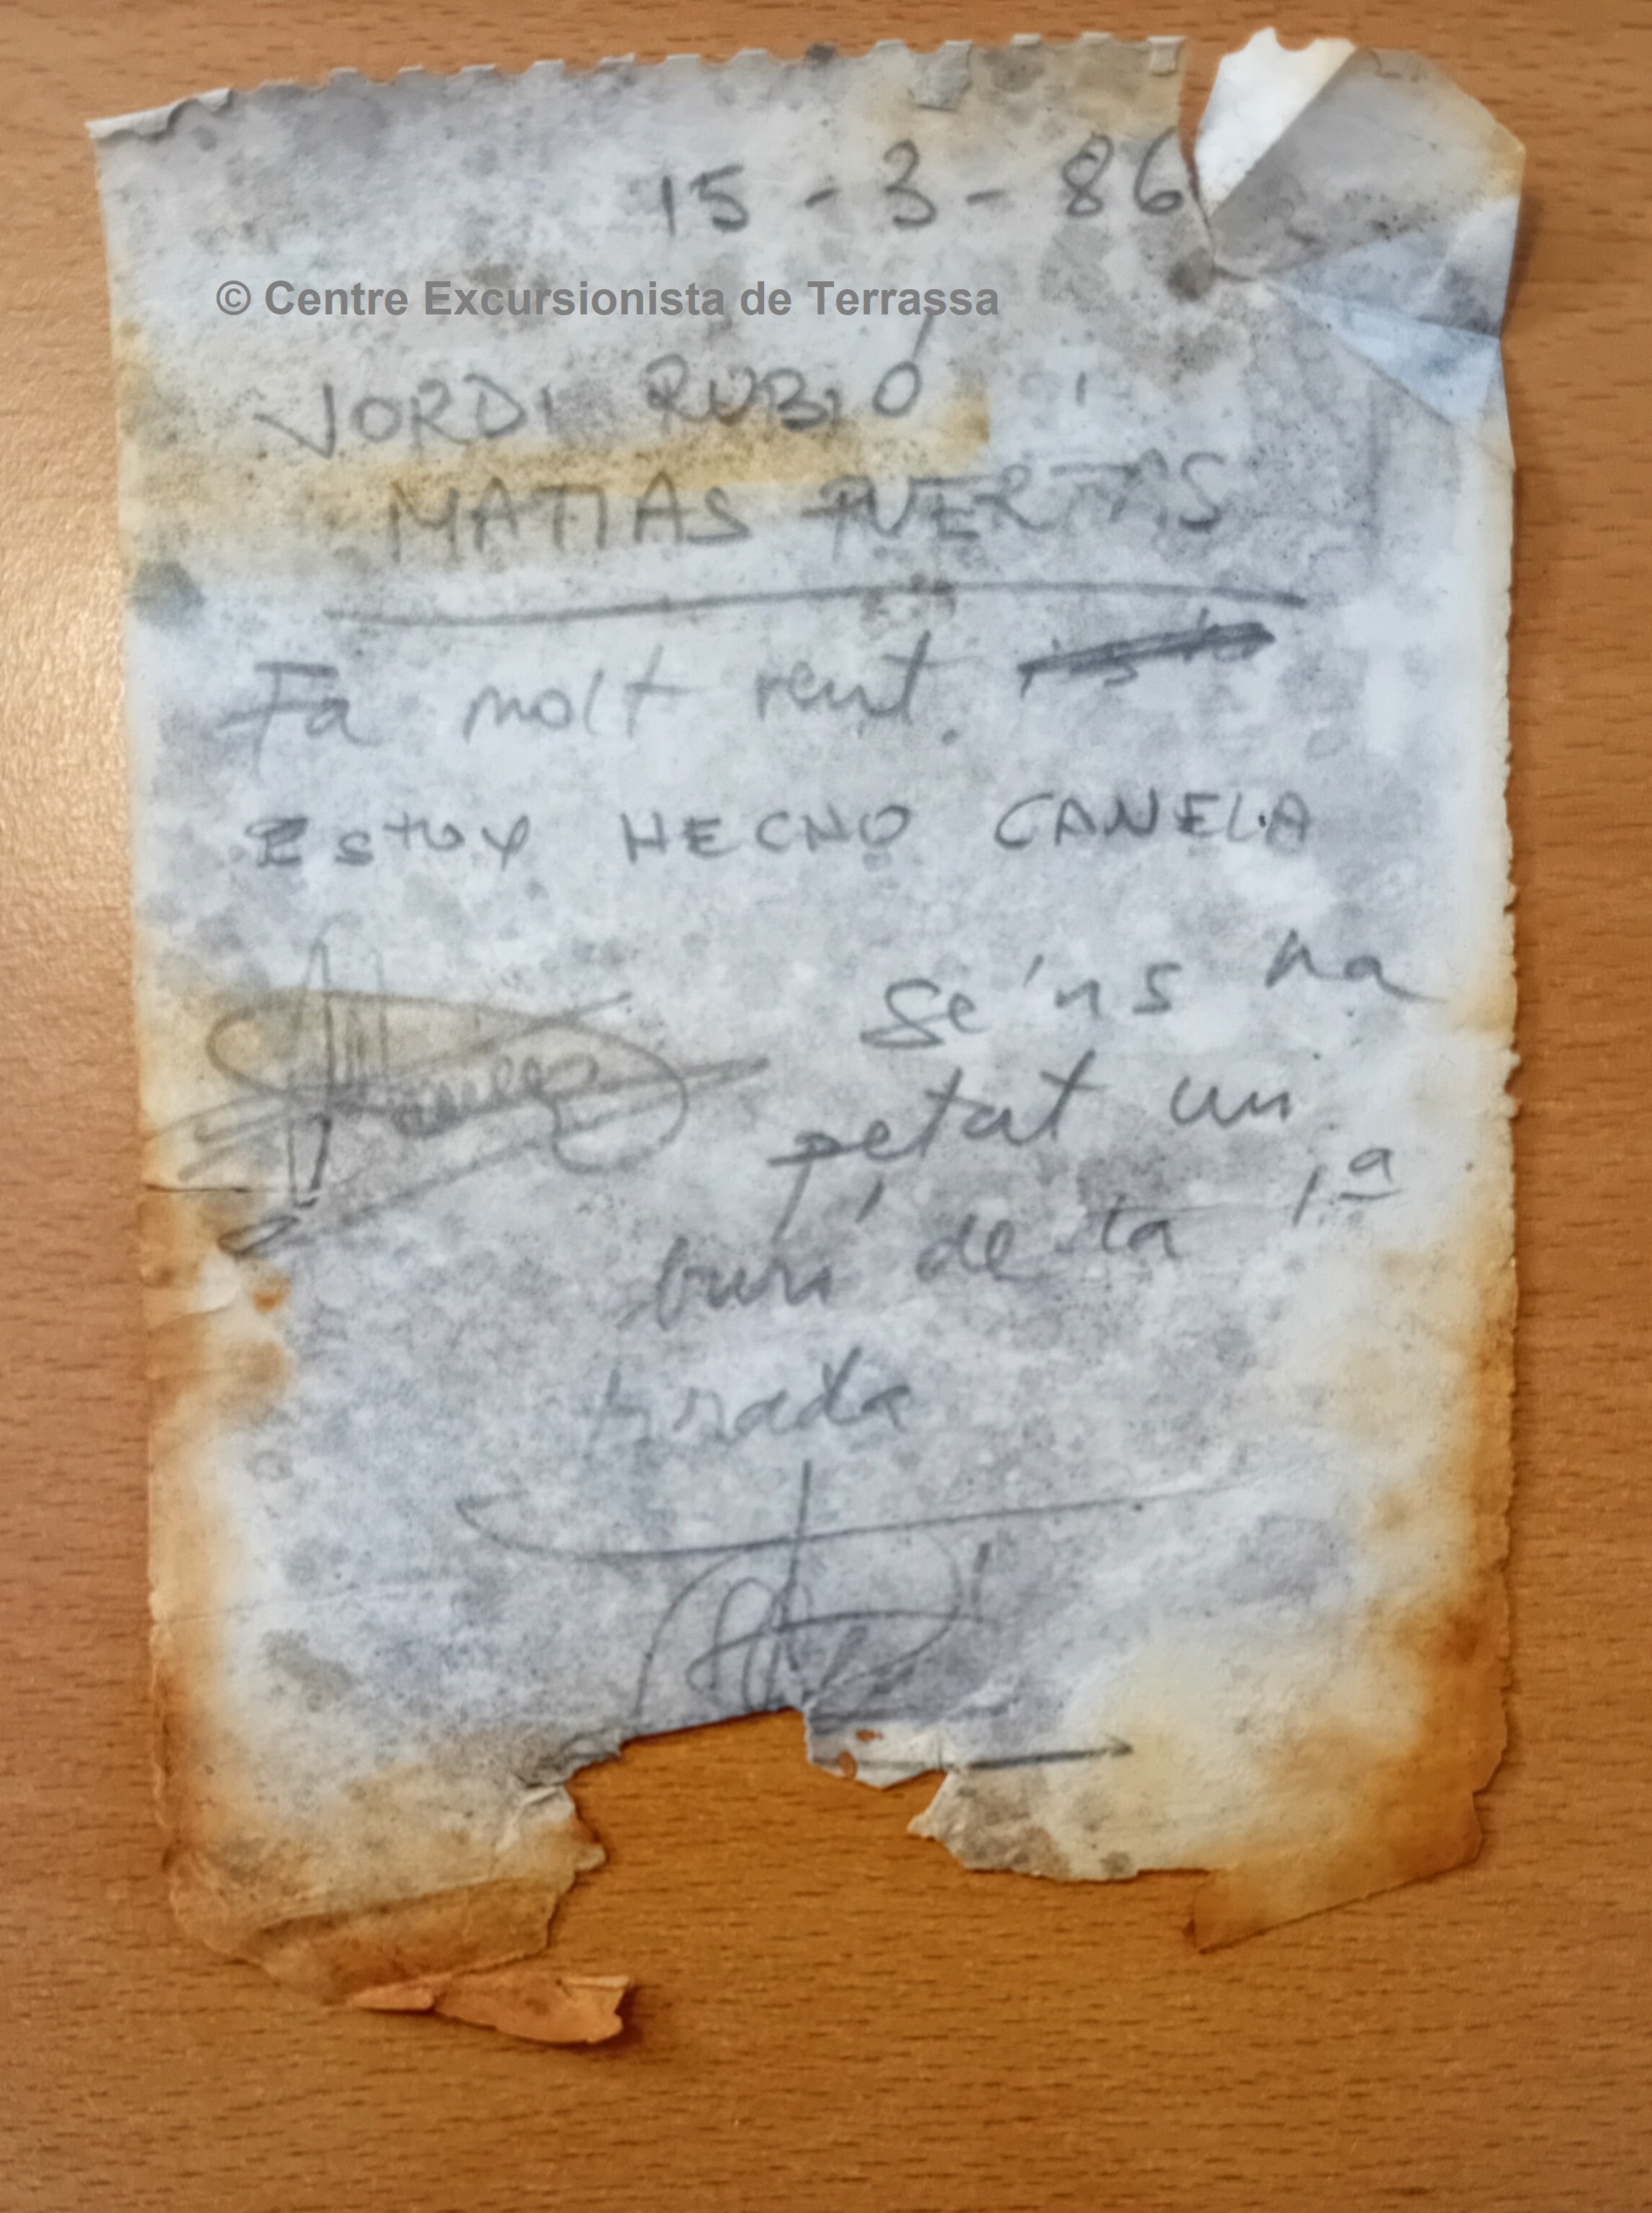 15 - 3 - 86
© Centre Excursionista de Terrassa
JORDI RUBIÓ i
MATIAS PUERTAS
Fa molt vent.
ESTOY HECHO CANELA
Se'ns ha
petat un
burí de la 1ª
tirada